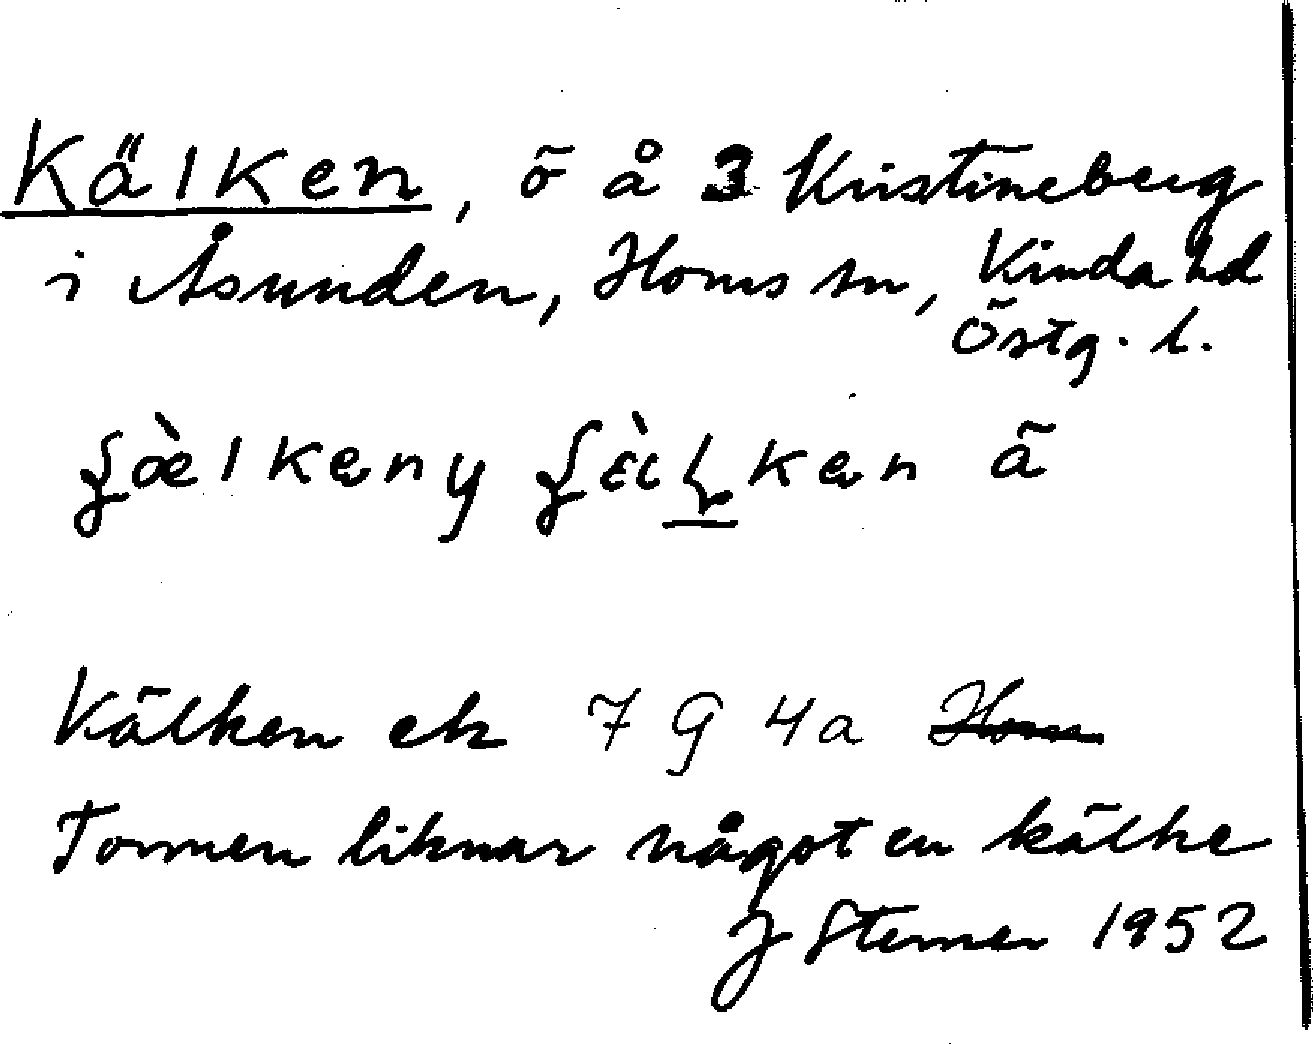 Kälken, ö å 3 Kristineberg
i Åsunden, Horns sn, Kinda hd
Östg. l.
ä
Kälken ek 7 G 4a Horn
Formen liknar något en kälke
J Sterner 1952